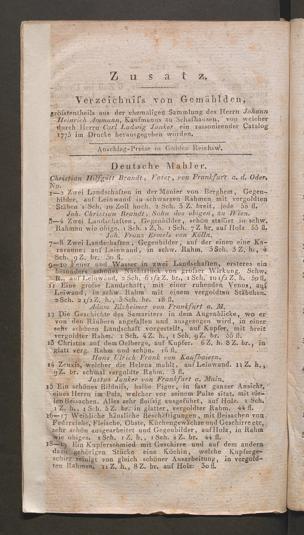 Zusatz.
Verzeichniss von Gemählden,
grösstentheils aus der ehemaligen Sammlung des Herrn Johann
Heinrich Ammann, Kaufmanns zu Schafhausen, von welcher
durch Herrn Carl Ludwig Junker ein raisonnirender Catalog
1775 im Drucke herausgegeben worden.
Anschlag-Preise in Gulden Reichsw.
Deutsche Mahler.
Christian Hilfgott Brandt, Vater, von Frankfurt a. d. Oder.
No.
1—2 Zwei Landschaften in der Manier von Berghem, Gegen-
bilder, auf Leinwand in schwarzen Rahmen mit vergoldten
Stäben 1 Sch. 10 Zoll hoch, 2 Sch. 3 Z. breit, jede 50 fl.
Joh. Christian Brandt, Sohn des obigen, zu Wien.
3—4 Zwei Landschaften, Gegenbilder, schön staffirt in schw.
Rahmen wie obige. 1 Sch. 1 Z. h. 1 Sch. 7 Z. br, auf Holz 55 fl.
Joh. Franz Ermels von Kölln.
7—8 Zwei Landschaften, Gegenbilder, auf der einen eine Ka-
ravanne; auf Leinwand, in schw. Rahm. 3 Sch. 3 Z. h., 4
Sch. 9 Z. br. 30 fl.
9—10 Feuer und Wasser in zwei Landschaften, ersteres ein
besonders schönes Nachtstück von grosser Wirkung, Schw.
R., auf Leinwand, 2 Sch. 6 1/2 Z. br., 1 Sch. 10 1/2 Z. h. 50 fl.
11 Eine grosse Landschaft, mit einer ruhenden Venus, auf
Leinwand, in schw. Rahm mit einem vergoldten Stäbchen.
2 Sch. 2 1/2 Z. h., 3 Sch. br. 18 fl.
Adam Elzheimer von Frankfurt a. M.
12 Die Geschichte des Samariters in dem Augenblicke, wo er
von den Räubern angefallen und ausgezogen wird, in einer
sehr schönen Landschaft vorgestellt, auf Kupfer, mit breit
vergoldter Rahm. 1 Sch. 4 Z. h., 1 Sch. 9 Z. br. 35 fl.
13 Christus auf dem Oelberge, auf Kupfer. 6 Z. h. 8 Z. br., in
glatt verg. Rahm und schön. 16 fl.
Hans Ulrich Frank von Kaufbaiern.
14 Zeuxis, welcher die Helena mahlt, auf Leinwand. 11 Z. h.,
9 Z. br. schmal vergoldte Rahm. 3 fl.
Justus Junker von Frankfurt a. Main,
15 Ein schönes Bildniss, halbe Figur, in fast ganzer Ansicht,
eines Herrn im Pelz, welcher vor seinem Pulte sitzt, mit vie-
len Beisachen. Alles sehr fleissig ausgeführt, auf Holz. 1 Sch.
1 Z. h., 1 Sch. 5 Z. br. in glatter, vergoldter Rahm. 44 fl.
16—17 Weibliche häusliche Beschäftigungen, mit Beisachen von
Federvieh, Fleische, Obste, Küchengewächse und Geschirre etc,
sehr schön ausgearbeitet und Gegenbilder, auf Holz, in Rahm
wie obiges. 1 Sch. 1 Z. h., 1 Sch. 5 Z. br. 44 fl.
18—19 Ein Kupferschmied mit Geschirre und auf dem andern
dazu gehörigen Stücke eine Köchin, welche Kupferge-
schirr reinigt von gleich schöner Ausarbeitung, in vergold-
ten Rahmen, 11 Z. h., 8 Z. br. auf Holz. 30 fl.